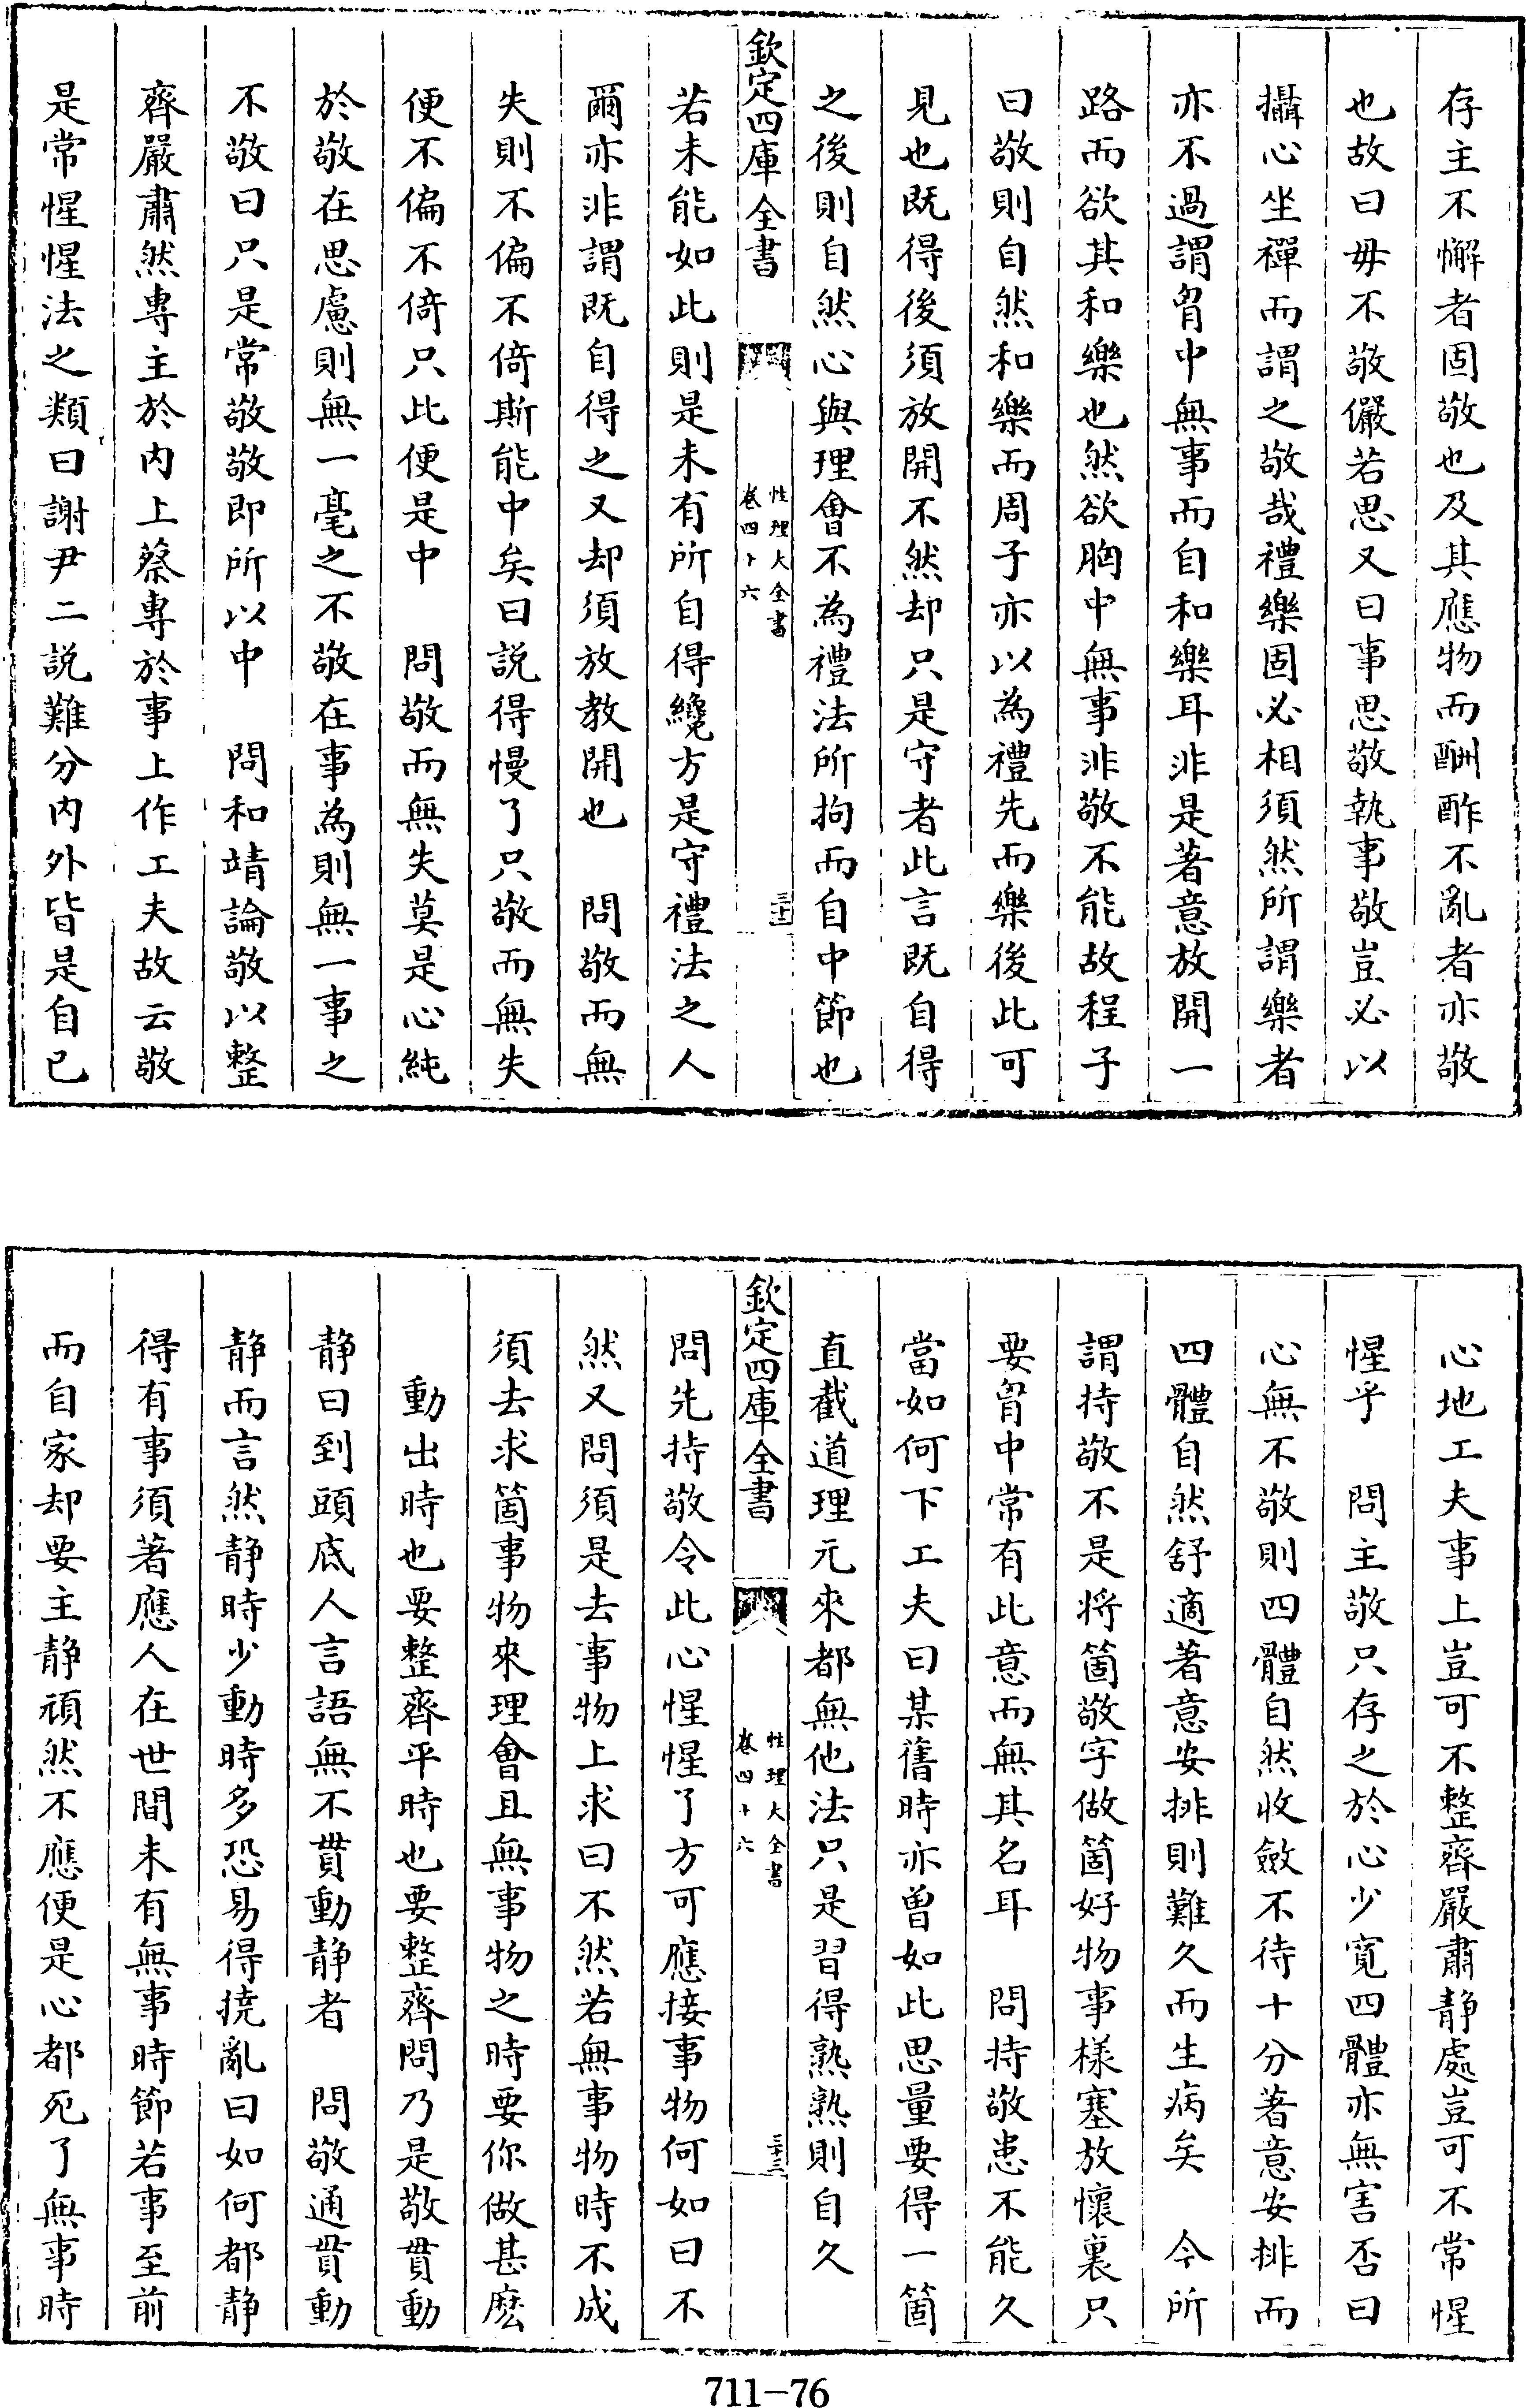 存主不懈者固敬也及其應物而酬酢不亂者亦敬
也故曰毋不敬儼若思又曰事思敬執事敬豈必以
攝心坐禪而謂之敬哉禮樂固必相須然所謂樂者
亦不過謂胷中無事而自和樂耳非是著意放開一
路而欲其和樂也然欲胸中無事非敬不能故程子
曰敬則自然和樂而周子亦以為禮先而樂後此可
見也既得後須放開不然却只是守者此言既自得
之後則自然心與理會不為禮法所拘而自中節也
欽定四庫全書
性理大全書
卷四十六
三十二
若未能如此則是未有所自得纔方是守禮法之人
爾亦非謂既自得之又却須放教開也 問敬而無
失則不偏不倚斯能中矣曰説得慢了只敬而無失
便不偏不倚只此便是中 問敬而無失莫是心純
於敬在思慮則無一毫之不敬在事為則無一事之
不敬曰只是常敬敬即所以中 問和靖論敬以整
齊嚴肅然專主於内上蔡專於事上作工夫故云敬
是常惺惺法之類曰謝尹二説難分内外皆是自己
心地工夫事上豈可不整齊嚴肅静處豈可不常惺
惺乎 問主敬只存之於心少寛四體亦無害否曰
心無不敬則四體自然收斂不待十分著意安排而
四體自然舒適著意安排則難久而生病矣 今所
謂持敬不是将箇敬字做箇好物事樣塞放懷裏只
要胷中常有此意而無其名耳 問持敬患不能久
當如何下工夫曰某舊時亦曾如此思量要得一箇
直截道理元來都無他法只是習得熟熟則自久
欽定四庫全書
性理大全書
卷四十六
三十三
問先持敬令此心惺惺了方可應接事物何如曰不
然又問須是去事物上求曰不然若無事物時不成
須去求箇事物來理會且無事物之時要你做甚麽
動出時也要整齊平時也要整齊問乃是敬貫動
静曰到頭底人言語無不貫動静者 問敬通貫動
静而言然静時少動時多恐易得撓亂曰如何都静
得有事須著應人在世間未有無事時節若事至前
而自家却要主静頑然不應便是心都死了無事時
711-76